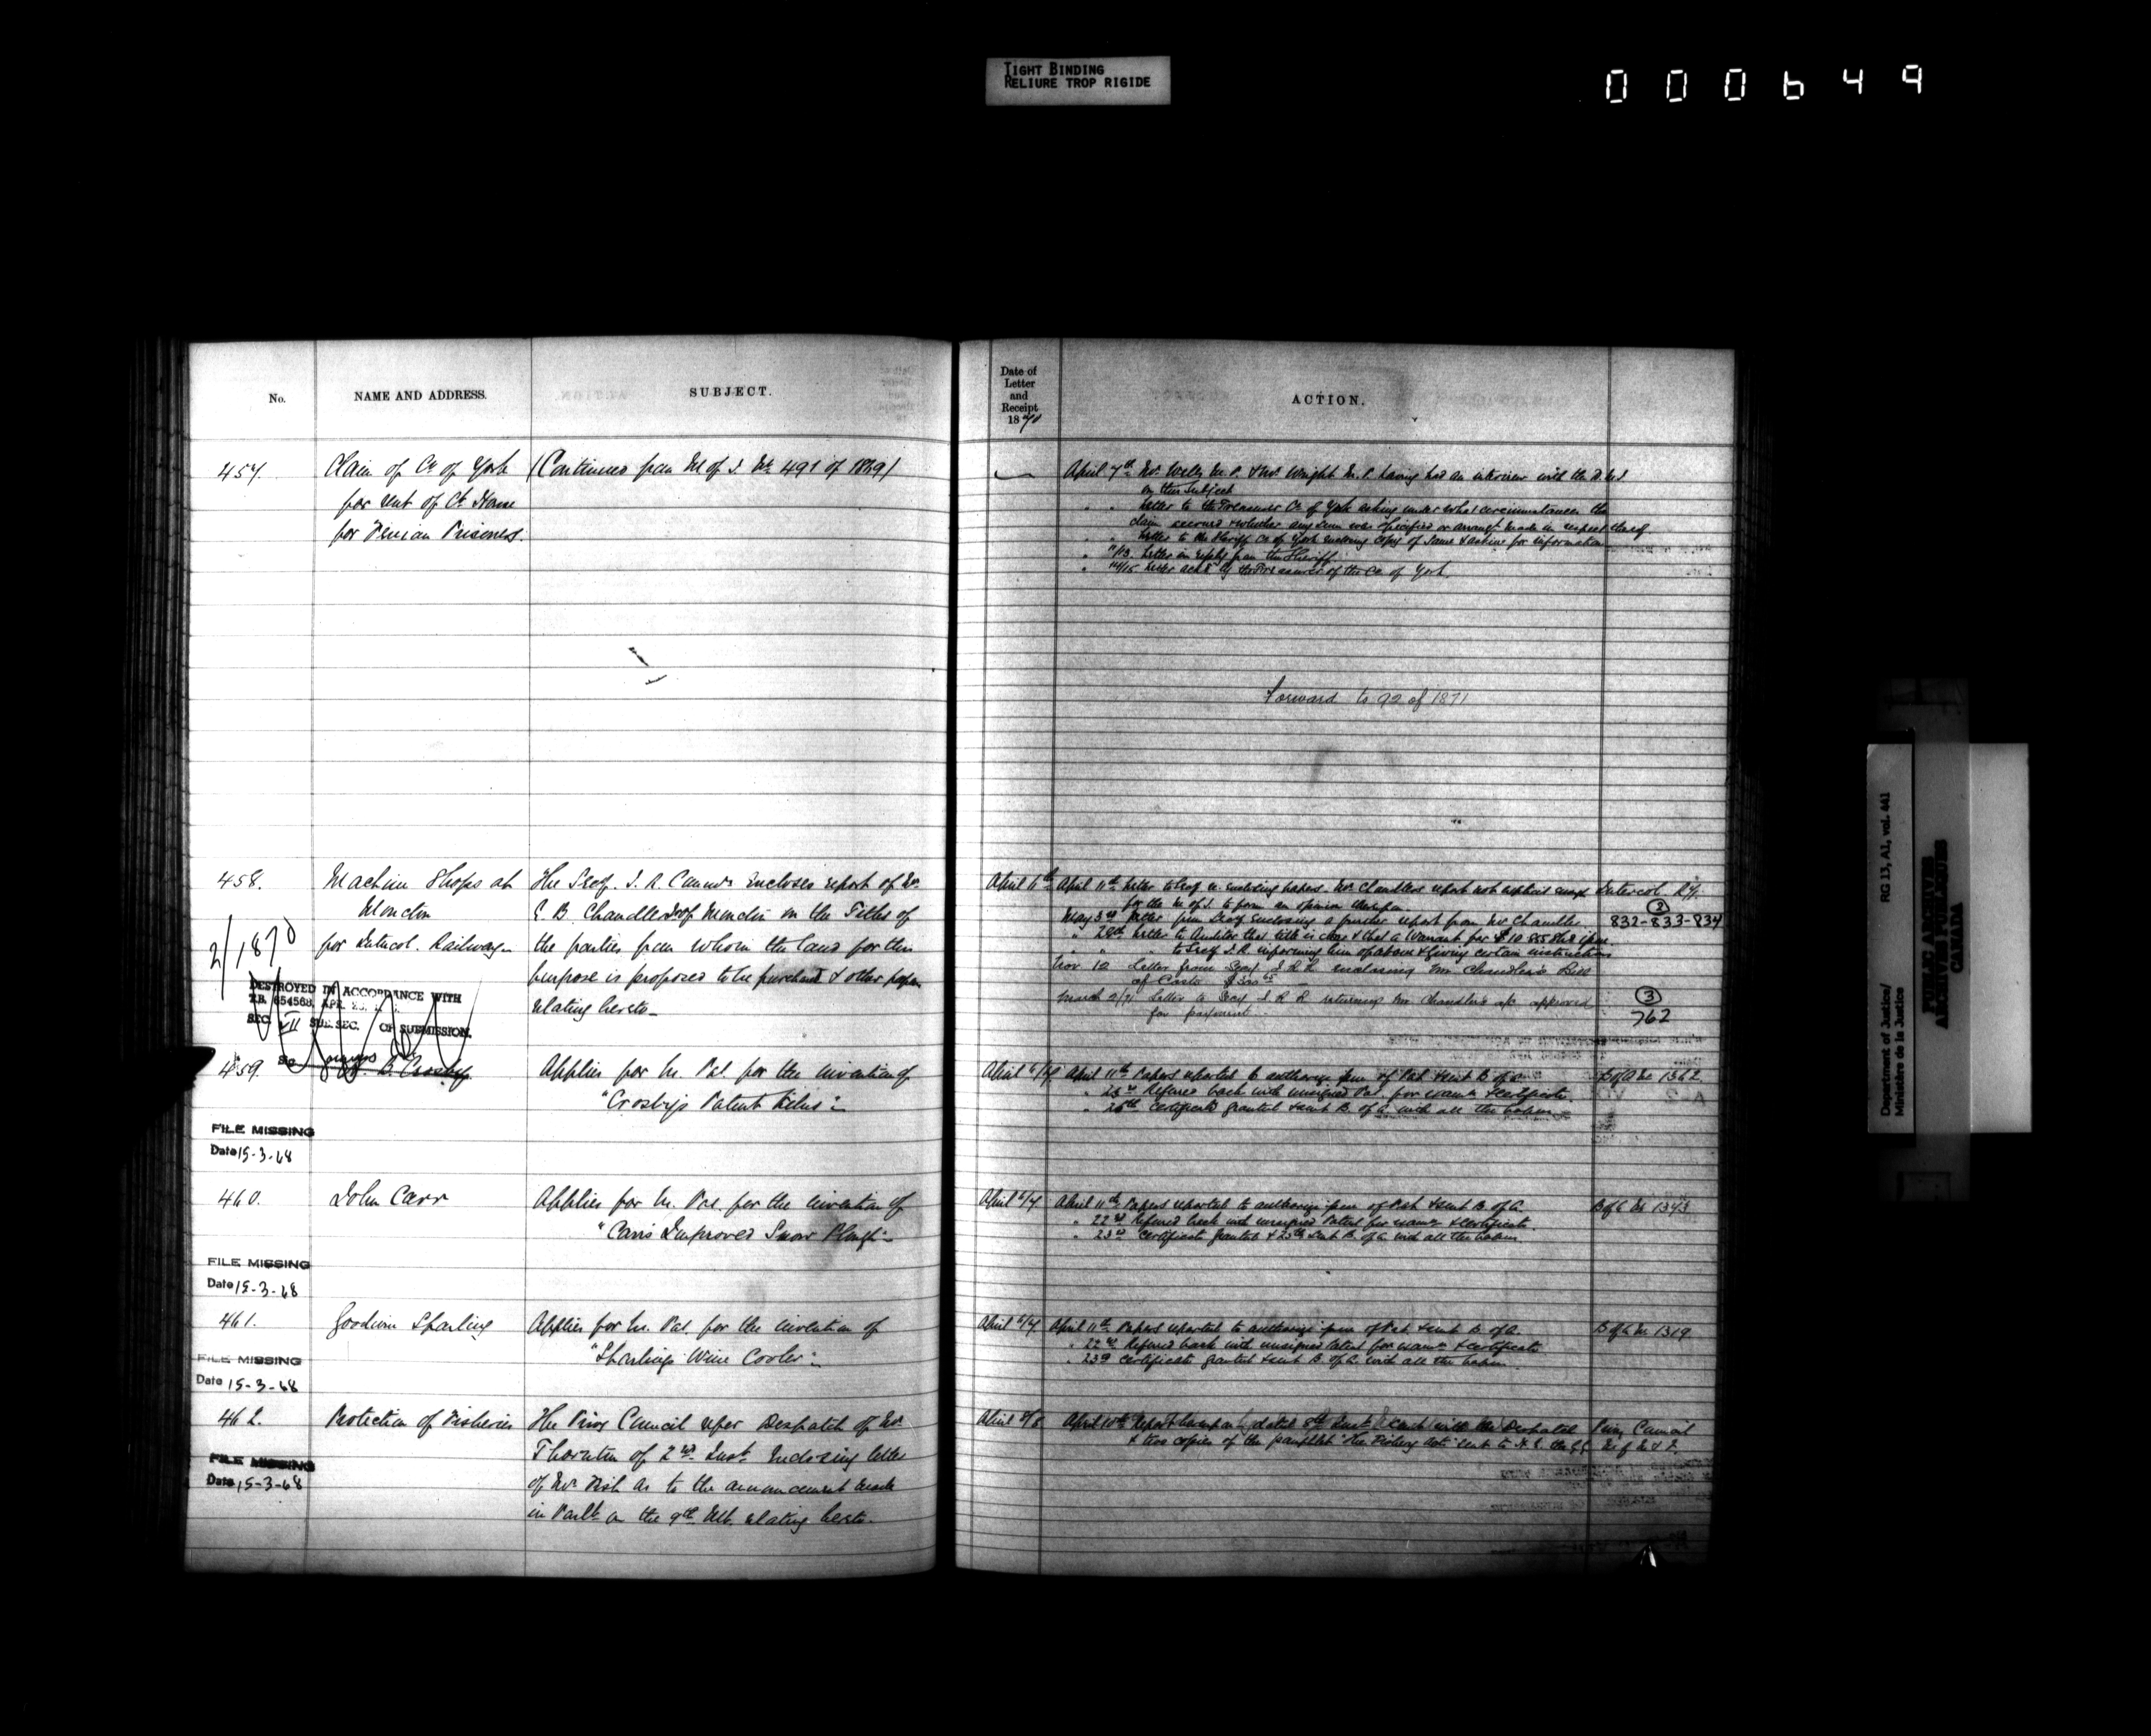 TIGHT BINDING
RELIURE TROP RIGIDE
000649
No.
NAME AND ADDRESS.
SUBJECT.
457.
Claim of Co of York
for rent of Ct House
for Fenian Prisoners.
(Continued from M of J. No. 491 of 1869)
458.
Machine Shops at
Moncton
for Intercol. Railway
The Secy. I. R. Commrs encloses report of Mr
E. B. Chandler Jr of Moncton on the Titles of
the parties from whom the land for this
purpose is proposed to be purchased & other papers
relating hereto
2/1870
DESTROYED IN ACCORDANCE WITH
T.B. 654568, APR.
SEC. VII SUB. SEC. OF SUBMISSION.
459.
B. Crosby
Applies for In. Pat. for the invention of
"Crosby's Patent
FILE MISSING
Date 15-3-68
460.
John Carr
Applies for In. Pat. for the invention of
"Carr's Improved Snow Plough"
FILE MISSING
Date 15-3-68
461.
Goodwin Sparling
Applies for In. Pat. for the invention of
"Sparling's Wine Cooler"
FILE MISSING
Date 15-3-68
462.
Protection of Fisheries
The Privy Council refer Despatch of Mr
Thornton of 2nd Inst. enclosing letter
of Mr Fish as to the announcement made
in Parlt. on the 9th Ult. relating hereto.
FILE MISSING
Date 15-3-68
Date of
Letter
and
Receipt
1870
ACTION.
April 7th Mr. Wells M.P. & Mr. Wright M.P. having had an interview with the
on this subject
" " Letter to the Treasurer Co. of York asking under what circumstances the
claim accrued & whether any sum was specified or arrangt. made in respect thereof
" Letter to the Sheriff Co of York enclosing copy of same & asking for information
" /13 Letter in reply from the Sheriff
" 14/15 Letter ackd by the Treasurer of the Co of York.
Forward to 92 of 1871
April 11th Letter to Secy enclosing papers. Mr Chandler's report not explicit enough
for the M of J. to form an opinion thereon
Intercol. Ry.
May 3rd Letter from Secy enclosing a further report from Mr Chandler
2
832-833-834
" 28th Letter to Auditor that title is clear & that a Warrant for
" " to Secy I.R. informing him of above & giving certain instructions
Nov 10 Letter from Secy I R R enclosing Mr Chandler's Bill
of Costs
March 2/71 Letter to Secy I R R returning Mr Chandler's a/c approved
for payment
3
762
April 11th Papers reported to authorize issue of Pat. & sent B. of A.
B of A No 1362
Referred back with unsigned Pat. for exam. & certificate.
" 26th Certificate granted & sent B. of A. with all the papers
April 6/7
April 11th Papers reported to authorize issue of Pat. & sent B. of A.
B of A No 1343
" 22nd Referred back with unsigned Patent for exam. & certificate.
" 23rd Certificate granted & 25th sent B. of A. with all the papers
April 6/7
April 11th Papers reported to authorize issue of Pat. & sent B. of A.
B of A No 1319
" 22nd Referred back with unsigned Patent for exam. & certificate
" 23rd Certificate granted & sent B. of A. with all the papers
April 8/8
April 10th Report hereupon dated 8th Inst. with the Despatch
Privy Council
& two copies of the pamphlet "The Fishery Acts" sent to H. E. the G.G.
M of M & F.
Department of Justice/
Ministère de la Justice
RG 13, A1, vol. 441
PUBLIC ARCHIVES
ARCHIVES PUBLIQUES
CANADA